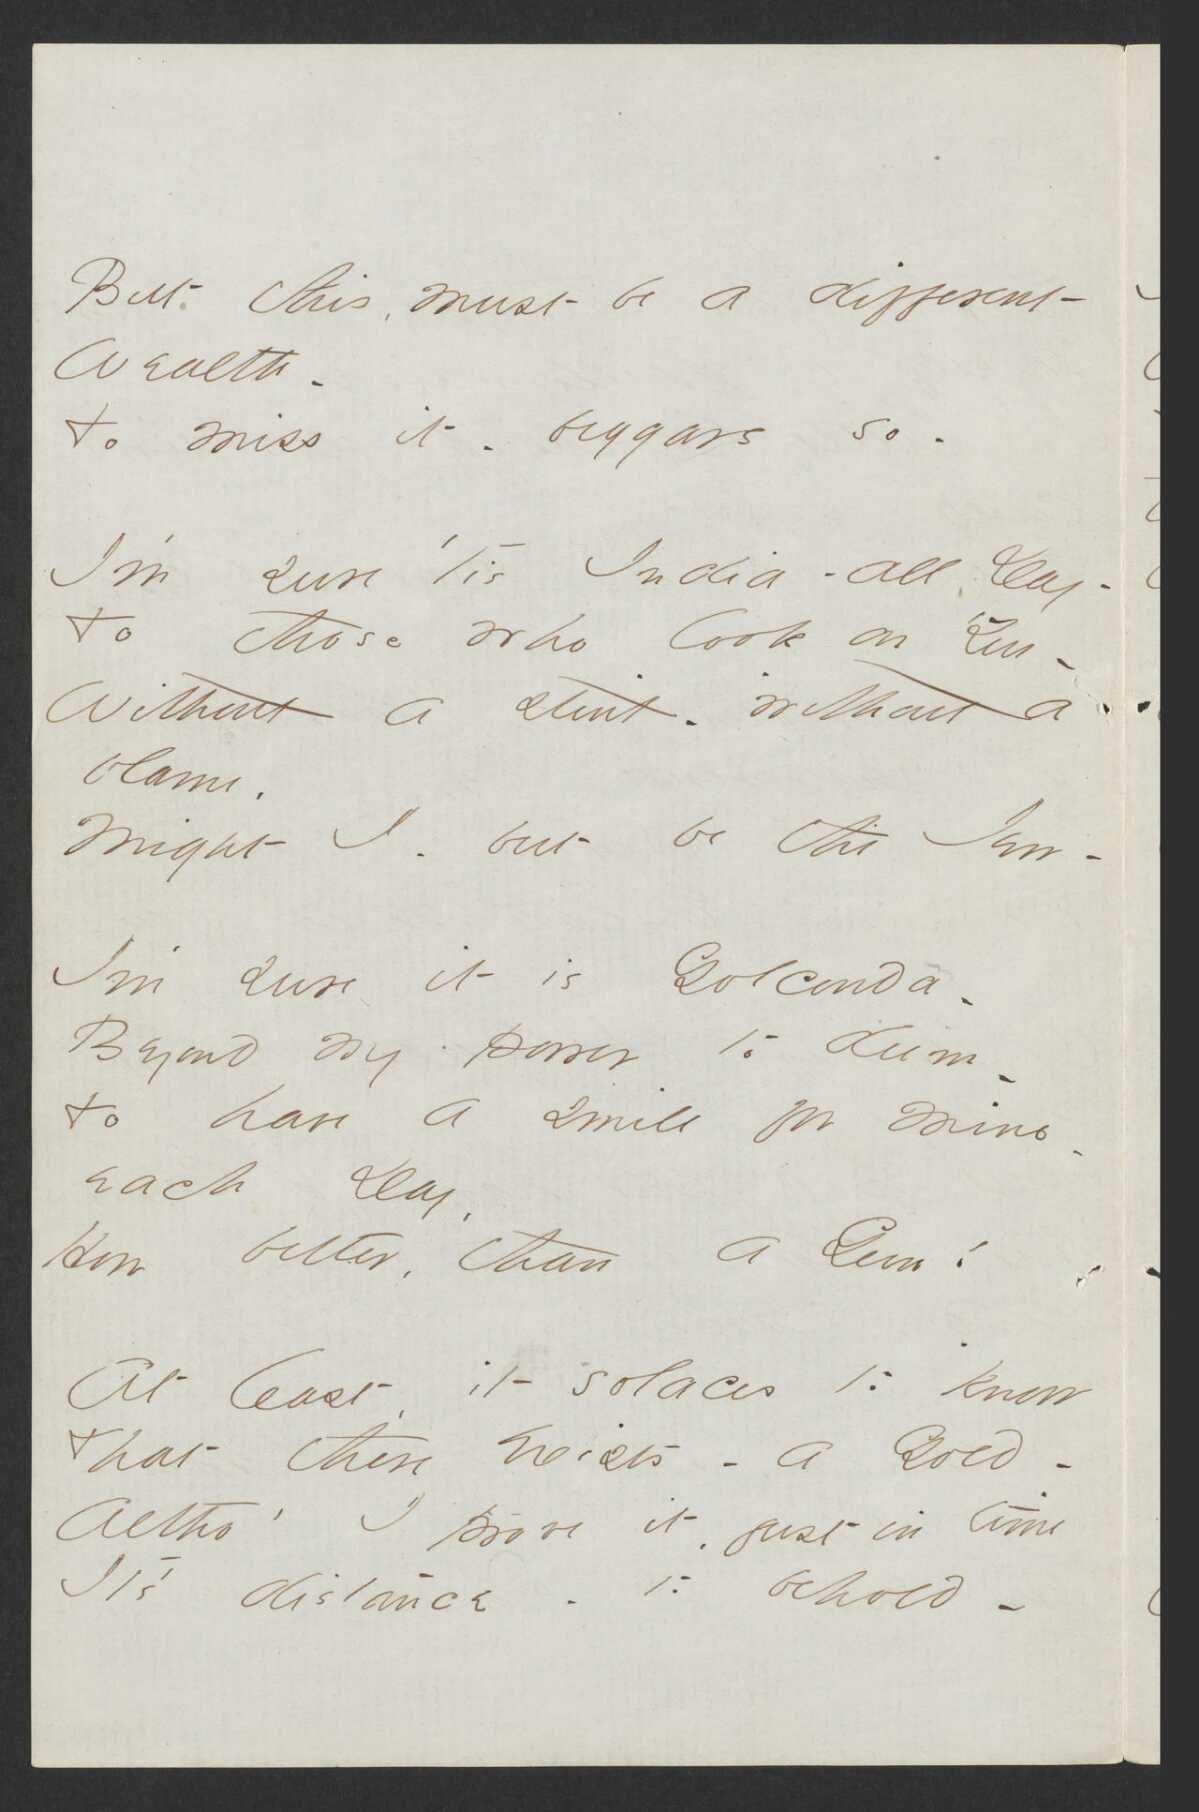 But this, must be a different
Wealth -
To miss it - beggars so -
I'm sure 'tis India - all Day -
To those who look on You -
Without a stint - without a
blame,
Might I - but be the Jew -
I'm sure it is Golconda -
Beyond my power to deem -
To have a smile for mine -
each Day,
How better, than a Gem!
At least, it solaces to know
That there exists - a Gold -
Altho' I prove it, just in time
It's distance - to behold -